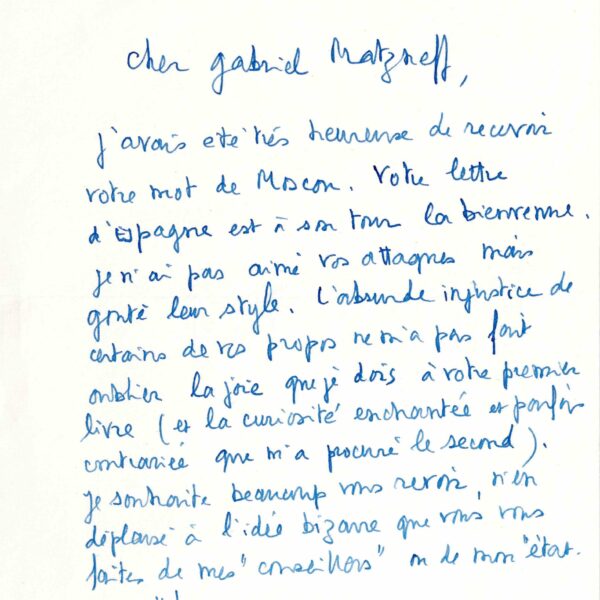 cher gabriel Matzneff,
j'avais été très heureuse de recevoir
votre mot de Moscou. Votre lettre
d'Espagne est à son tour la bienvenue.
je n'ai pas aimé vos attaques mais
goûté leur style. L'absurde injustice de
certains de vos propos ne m'a pas fait
oublier la joie que je dois à votre premier
livre (et la curiosité enchantée et parfois
contrariée que m'a procuré le second).
je souhaite beaucoup vous revoir, n'en
déplaise à l'idée bizarre que vous vous
faites de mes "conseillers" ou de mon "état.